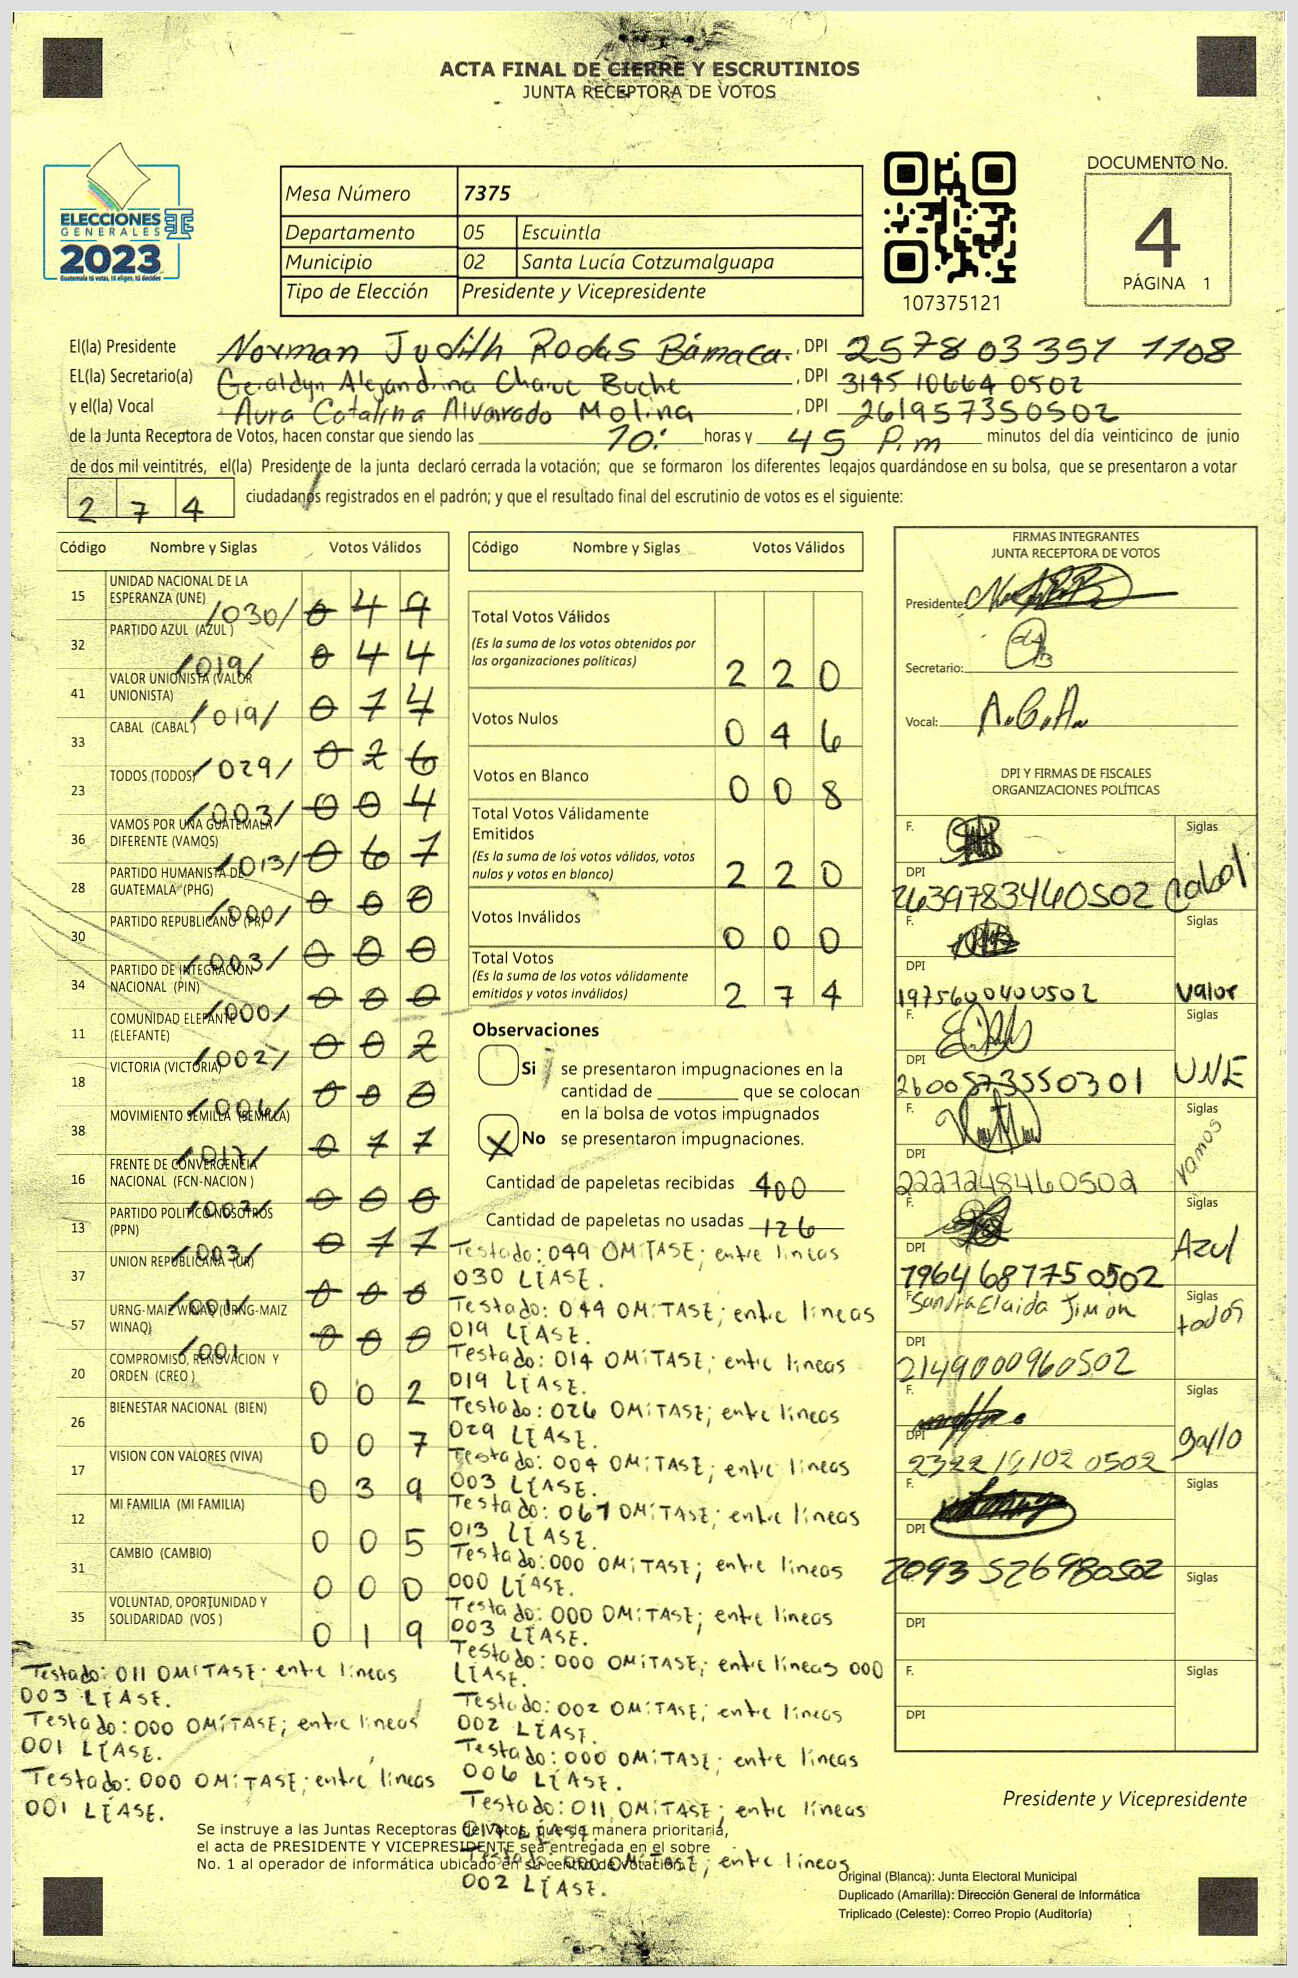 ACTA FINAL DE CIERRE Y ESCRUTINIOS
JUNTA RECEPTORA DE VOTOS
ELECCIONES
GENERALES
2023
Guatemala tú votas, tú eliges, tú decides
Mesa Número 7375
Departamento 05 Escuintla
Municipio 02 Santa Lucía Cotzumalguapa
Tipo de Elección Presidente y Vicepresidente
107375121
DOCUMENTO No.
4
PÁGINA 1
El(la) Presidente Norman Judith Rodas Bámaca. , DPI 2578 03351 1108
EL(la) Secretario(a) Geraldyn Alejandrina Buche , DPI 3145 10664 0502
y el(la) Vocal Aura Catalina Alvarado Molina , DPI 261957350502
de la Junta Receptora de Votos, hacen constar que siendo las 10: horas y 45 P.m minutos del día veinticinco de junio
de dos mil veintitrés, el(la) Presidente de la junta declaró cerrada la votación; que se formaron los diferentes legajos guardándose en su bolsa, que se presentaron a votar
2 7 4 ciudadanos registrados en el padrón; y que el resultado final del escrutinio de votos es el siguiente:
Código Nombre y Siglas Votos Válidos
15 UNIDAD NACIONAL DE LA ESPERANZA (UNE) /030/ 0 4 9
32 PARTIDO AZUL (AZUL ) /019/ 0 4 4
41 VALOR UNIONISTA (VALOR UNIONISTA) /019/ 0 7 4
33 CABAL (CABAL ) /029/ 0 2 6
23 TODOS (TODOS) /003/ 0 0 4
36 VAMOS POR UNA GUATEMALA DIFERENTE (VAMOS) /013/ 0 6 7
28 PARTIDO HUMANISTA DE GUATEMALA (PHG) /000/ 0 0 0
30 PARTIDO REPUBLICANO (PR) /003/ 0 0 0
34 PARTIDO DE INTEGRACIÓN NACIONAL (PIN) /000/ 0 0 0
11 COMUNIDAD ELEFANTE (ELEFANTE) /002/ 0 0 2
18 VICTORIA (VICTORIA) /006/ 0 0 0
38 MOVIMIENTO SEMILLA (SEMILLA) /017/ 0 1 1
16 FRENTE DE CONVERGENCIA NACIONAL (FCN-NACION ) /002/ 0 0 0
13 PARTIDO POLITICO NOSOTROS (PPN) /003/ 0 1 1
37 UNION REPUBLICANA (UR) /001/ 0 0 0
57 URNG-MAIZ WINAQ (URNG-MAIZ WINAQ) /001 0 0 0
20 COMPROMISO, RENOVACION Y ORDEN (CREO ) 0 0 2
26 BIENESTAR NACIONAL (BIEN) 0 0 7
17 VISION CON VALORES (VIVA) 0 3 9
12 MI FAMILIA (MI FAMILIA) 0 0 5
31 CAMBIO (CAMBIO) 0 0 0
35 VOLUNTAD, OPORTUNIDAD Y SOLIDARIDAD (VOS ) 0 1 9
Testado: 011 OMITASE; entre lineas
003 LÉASE.
Testado: 000 OMITASE; entre lineas
001 LÉASE.
Testado: 000 OMITASE; entre lineas
001 LÉASE.
Código Nombre y Siglas Votos Válidos
Total Votos Válidos 2 2 0
(Es la suma de los votos obtenidos por
las organizaciones políticas)
Votos Nulos 0 4 6
Votos en Blanco 0 0 8
Total Votos Válidamente
Emitidos 2 2 0
(Es la suma de los votos válidos, votos
nulos y votos en blanco)
Votos Inválidos 0 0 0
Total Votos 2 7 4
(Es la suma de los votos válidamente
emitidos y votos inválidos)
Observaciones
Si se presentaron impugnaciones en la
cantidad de ________ que se colocan
en la bolsa de votos impugnados
X No se presentaron impugnaciones.
Cantidad de papeletas recibidas 400
Cantidad de papeletas no usadas 126
Testado: 049 OMITASE; entre lineas
030 LÉASE.
Testado: 044 OMITASE; entre lineas
019 LÉASE.
Testado: 014 OMITASE; entre lineas
019 LÉASE.
Testado: 026 OMITASE; entre lineas
029 LÉASE.
Testado: 004 OMITASE; entre lineas
003 LÉASE.
Testado: 067 OMITASE; entre lineas
013 LÉASE.
Testado: 000 OMITASE; entre lineas
000 LÉASE.
Testado: 000 OMITASE; entre lineas
003 LÉASE.
Testado: 000 OMITASE; entre lineas 000
LÉASE.
Testado: 002 OMITASE; entre lineas
002 LÉASE.
Testado: 000 OMITASE; entre lineas
006 LÉASE.
Testado: 011 OMITASE; entre lineas
017 LÉASE.
Testado: 000 OMITASE; entre lineas
002 LÉASE.
FIRMAS INTEGRANTES
JUNTA RECEPTORA DE VOTOS
Presidente:
Secretario:
Vocal: A.C.A.
DPI Y FIRMAS DE FISCALES
ORGANIZACIONES POLÍTICAS
F. Siglas
DPI 2639783460502 Cabal
F. Siglas
DPI 1975600400502 Valor
F. Siglas
DPI 2600573550301 UNE
F. Siglas
DPI 2227248460502 Vamos
F. Siglas
DPI 1964687750502 Azul
F. Sandra Elaida Jimón Siglas
DPI 2149000960502 todos
F. Siglas
DPI 2322 18102 0502 gallo
F.
DPI 2093 526980502
Siglas
DPI
F. Siglas
DPI
Presidente y Vicepresidente
Se instruye a las Juntas Receptoras de Votos, que de manera prioritaria,
el acta de PRESIDENTE Y VICEPRESIDENTE sea entregada en el sobre
No. 1 al operador de informática ubicado en su centro de votación.
Original (Blanca): Junta Electoral Municipal
Duplicado (Amarilla): Dirección General de Informática
Triplicado (Celeste): Correo Propio (Auditoría)